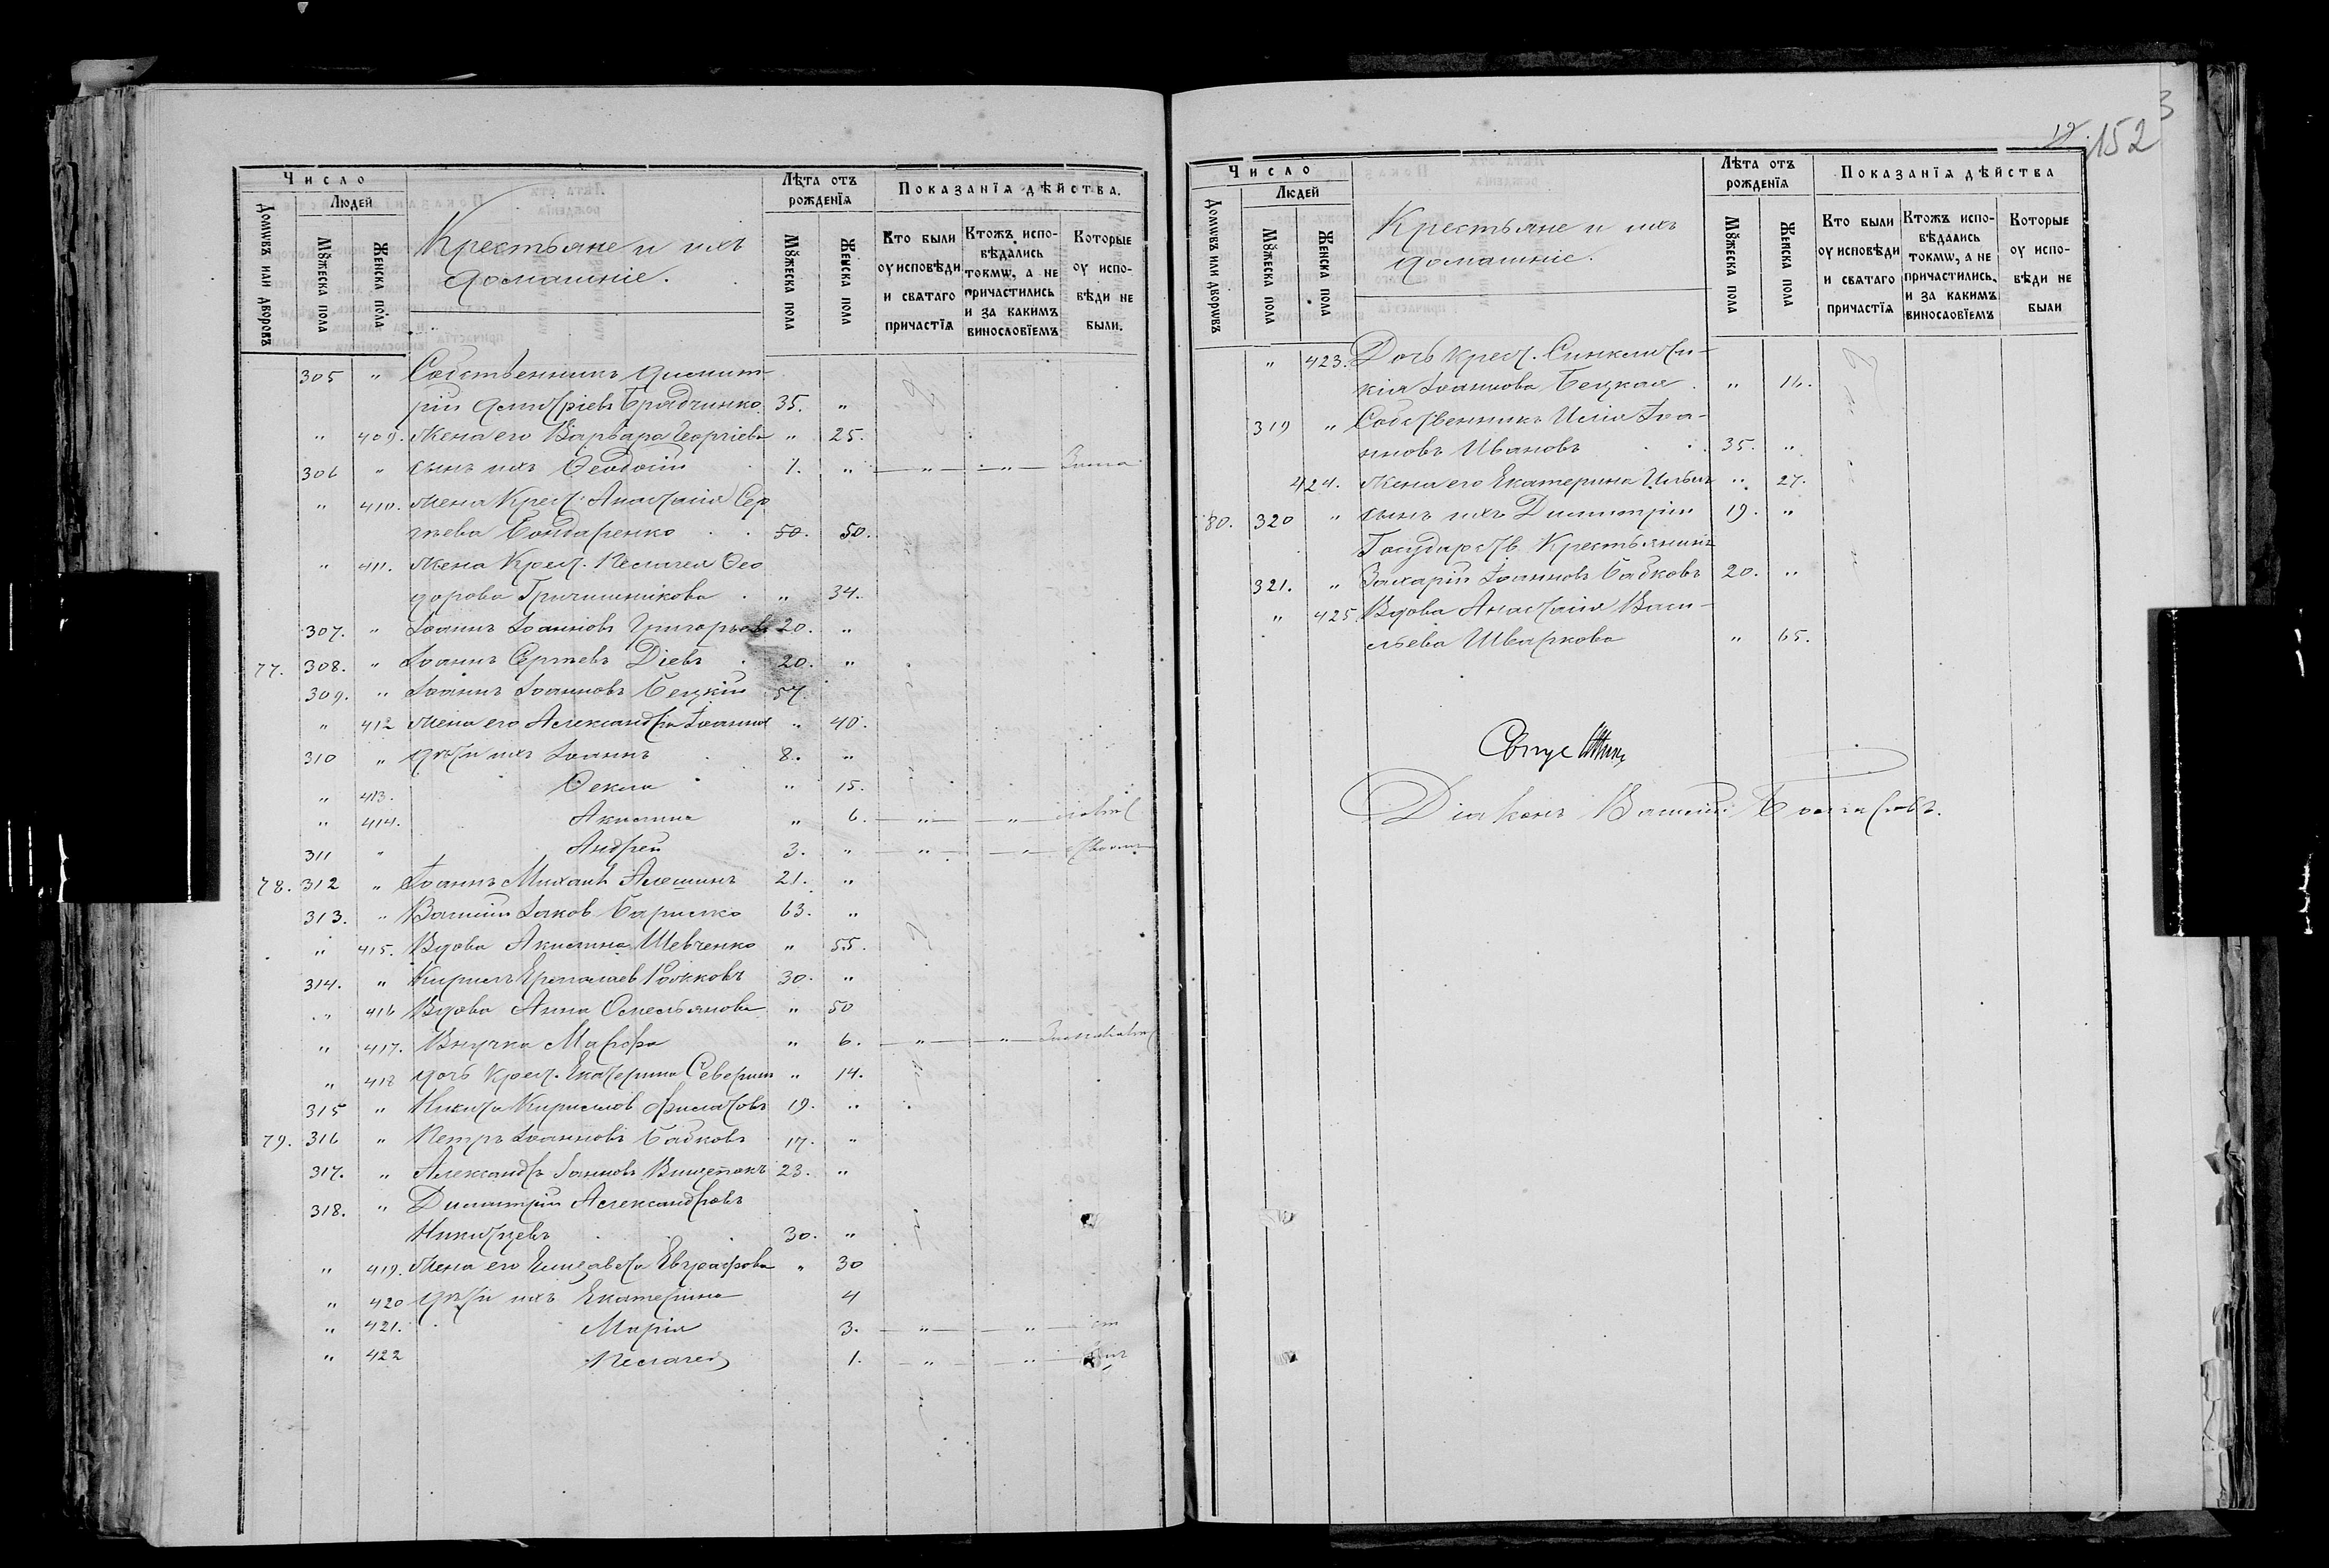 Число
Людей
Домѡвъ или дворовъ
Мꙋжеска пола
Женска пола
Крестьяне и ихъ
домашніе.
Лѣта отъ
рожденїѧ
Мꙋжеска пола
Женска пола
Показанїѧ дѣйства.
Кто были оу исповѣди и свѧтаго причастїѧ
Ктожъ исповѣдались токмѡ, а не причастились и за какимъ винословїемъ
Которые оу исповѣди не были.
305 " Собственникъ Димит-
рій Дмитріевъ 35. "
" 409. Жена его Варвара Георгіева " 25.
306 " сынъ ихъ Ѳеодосій 1. " — " — " —
" 410. Жена Крест. Анастасія Сер
гѣева Бондаренко 50. 50.
" 411. Жена Крест. Пелагея Ѳео
дорова Гричишникова " 34.
307. " Іоаннъ Іоанновъ Григорьевъ 20. "
77. 308. " Іоаннъ Сергѣевъ Діевъ 20. "
309. " Іоаннъ Іоанновъ Бецкій 57.
" 412 Жена его Александра Іоаннов " 40.
310 " дѣти ихъ Іоаннъ 8. "
" 413. Ѳекла " 15.
" 414. Акилина " 6. — " — " —
311 " Андрей 3. " — " — " —
78. 312 " Іоаннъ Михаил Алешинъ 21. "
313. " Василій Іаков 63. "
" 415. Вдова Акилина Шевченко " 55.
314. " Кирилъ Ермолаев 30. "
" 416 Вдова Анна Омельянова " 50
" 417. Внучка Марфа " 6. — " — " —
" 418 дочь Крест. Екатерина Северин " 14.
315 " Никита Кириллов Филатовъ 19. "
79. 316 " Петръ Іоанновъ Бабковъ 17. "
317. " Александръ Іоаннов 23. "
318. " Димитрій Александровъ
Никитцевъ 30. "
" 419. Жена его Елисавета Евграфова " 30
" 420 дѣти ихъ Екатерина 4
" 421. Марія 3. — " — " —
" 422 Пелагея 1. — " — " —
152
Число
Людей
Домѡвъ или дворѡвъ
Мꙋжеска пола
Женска пола
Крестьяне и ихъ
домашніе.
Лѣта отъ
рожденїѧ
Мꙋжеска пола
Женска пола
Показанїѧ дѣйства
Кто были оу исповѣди и свѧтаго причастїѧ
Ктожъ исповѣдались токмѡ, а не причастились, и за какимъ винословїемъ
Которые оу исповѣди не были
" 423. Дочь крест. Синклити-
кія Іоаннова Бецкая " 14.
319 " Собственникъ Илія Іоа-
нновъ Ивановъ 35. "
424. Жена его Екатерина " 27.
80. 320 " сынъ ихъ Димитрій 19. "
Государств. Крестьянинъ
321. " Захарій Іоанновъ Бабковъ 20. "
" 425 Вдова Анастасія Васи-
льева Шваркова " 65.
Діаконъ Василій